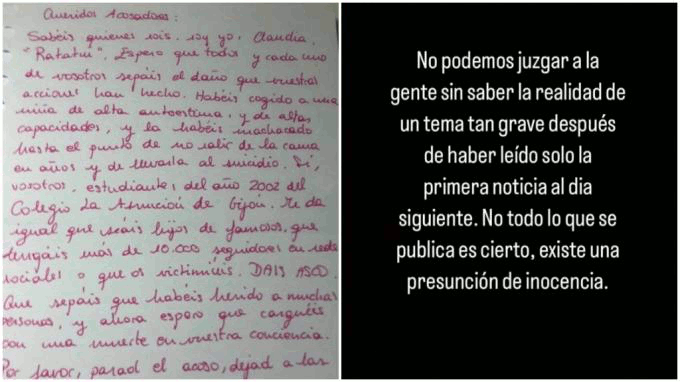 Queridos Acosadores:
Sabéis quienes sois. Soy yo, Claudia,
"Ratatui". Espero que todos y cada uno
de vosotros sepáis el daño que vuestras
acciones han hecho. Habéis cogido a una
niña de alta autoestima, y de altas
capacidades, y la habéis machacado
hasta el punto de no salir de la cama
en años y de llevarla al suicidio. Sí,
vosotros, estudiantes del año 2002 del
Colegio La Asunción de Gijón. Me da
igual que seáis hijos de famosos, que
tengáis más de 10.000 seguidores en redes
sociales o que os victimicéis. DAIS ASCO.
Que sepáis que habéis herido a muchas
personas, y ahora espero que carguéis
con una muerte en vuestra conciencia.
Por favor, parad el acoso, dejad a las
No podemos juzgar a la
gente sin saber la realidad de
un tema tan grave después
de haber leído solo la
primera noticia al dia
siguiente. No todo lo que se
publica es cierto, existe una
presunción de inocencia.